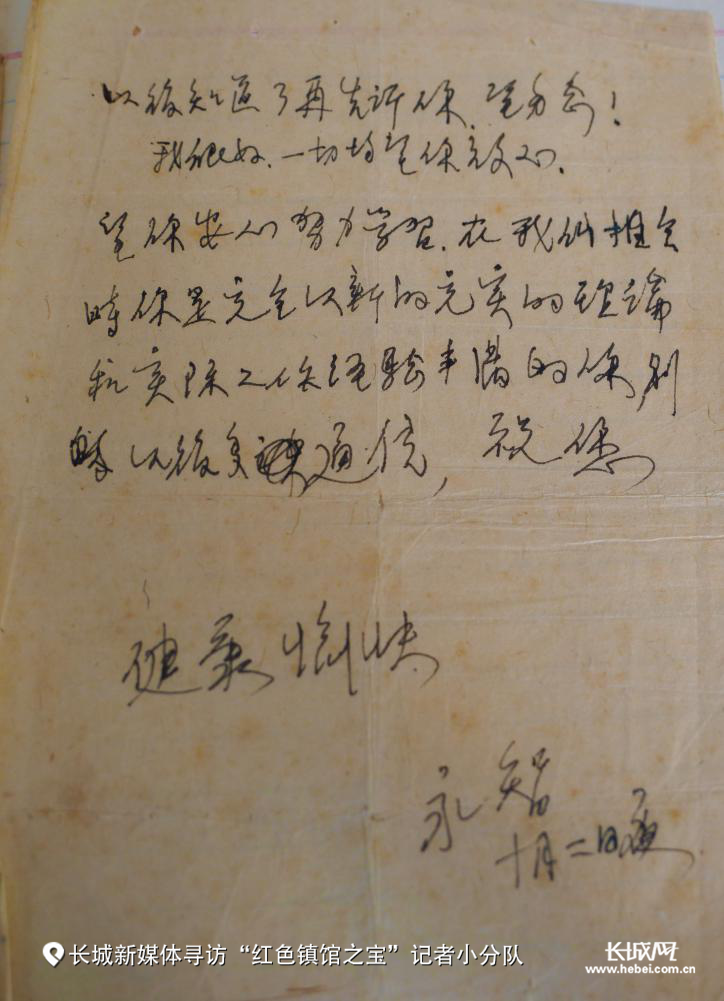 以後知道了再告訴你，望勿念！
我很好、一切均望你放心。
望你安心努力學習，在我们相会
時你是完全以新的充实的理論
和实际工作经驗丰满的你，别
時以後多通信，祝您
健康愉快
永智
十月二日夜
长城新媒体寻访“红色镇馆之宝”记者小分队
长城网
www.hebei.com.cn